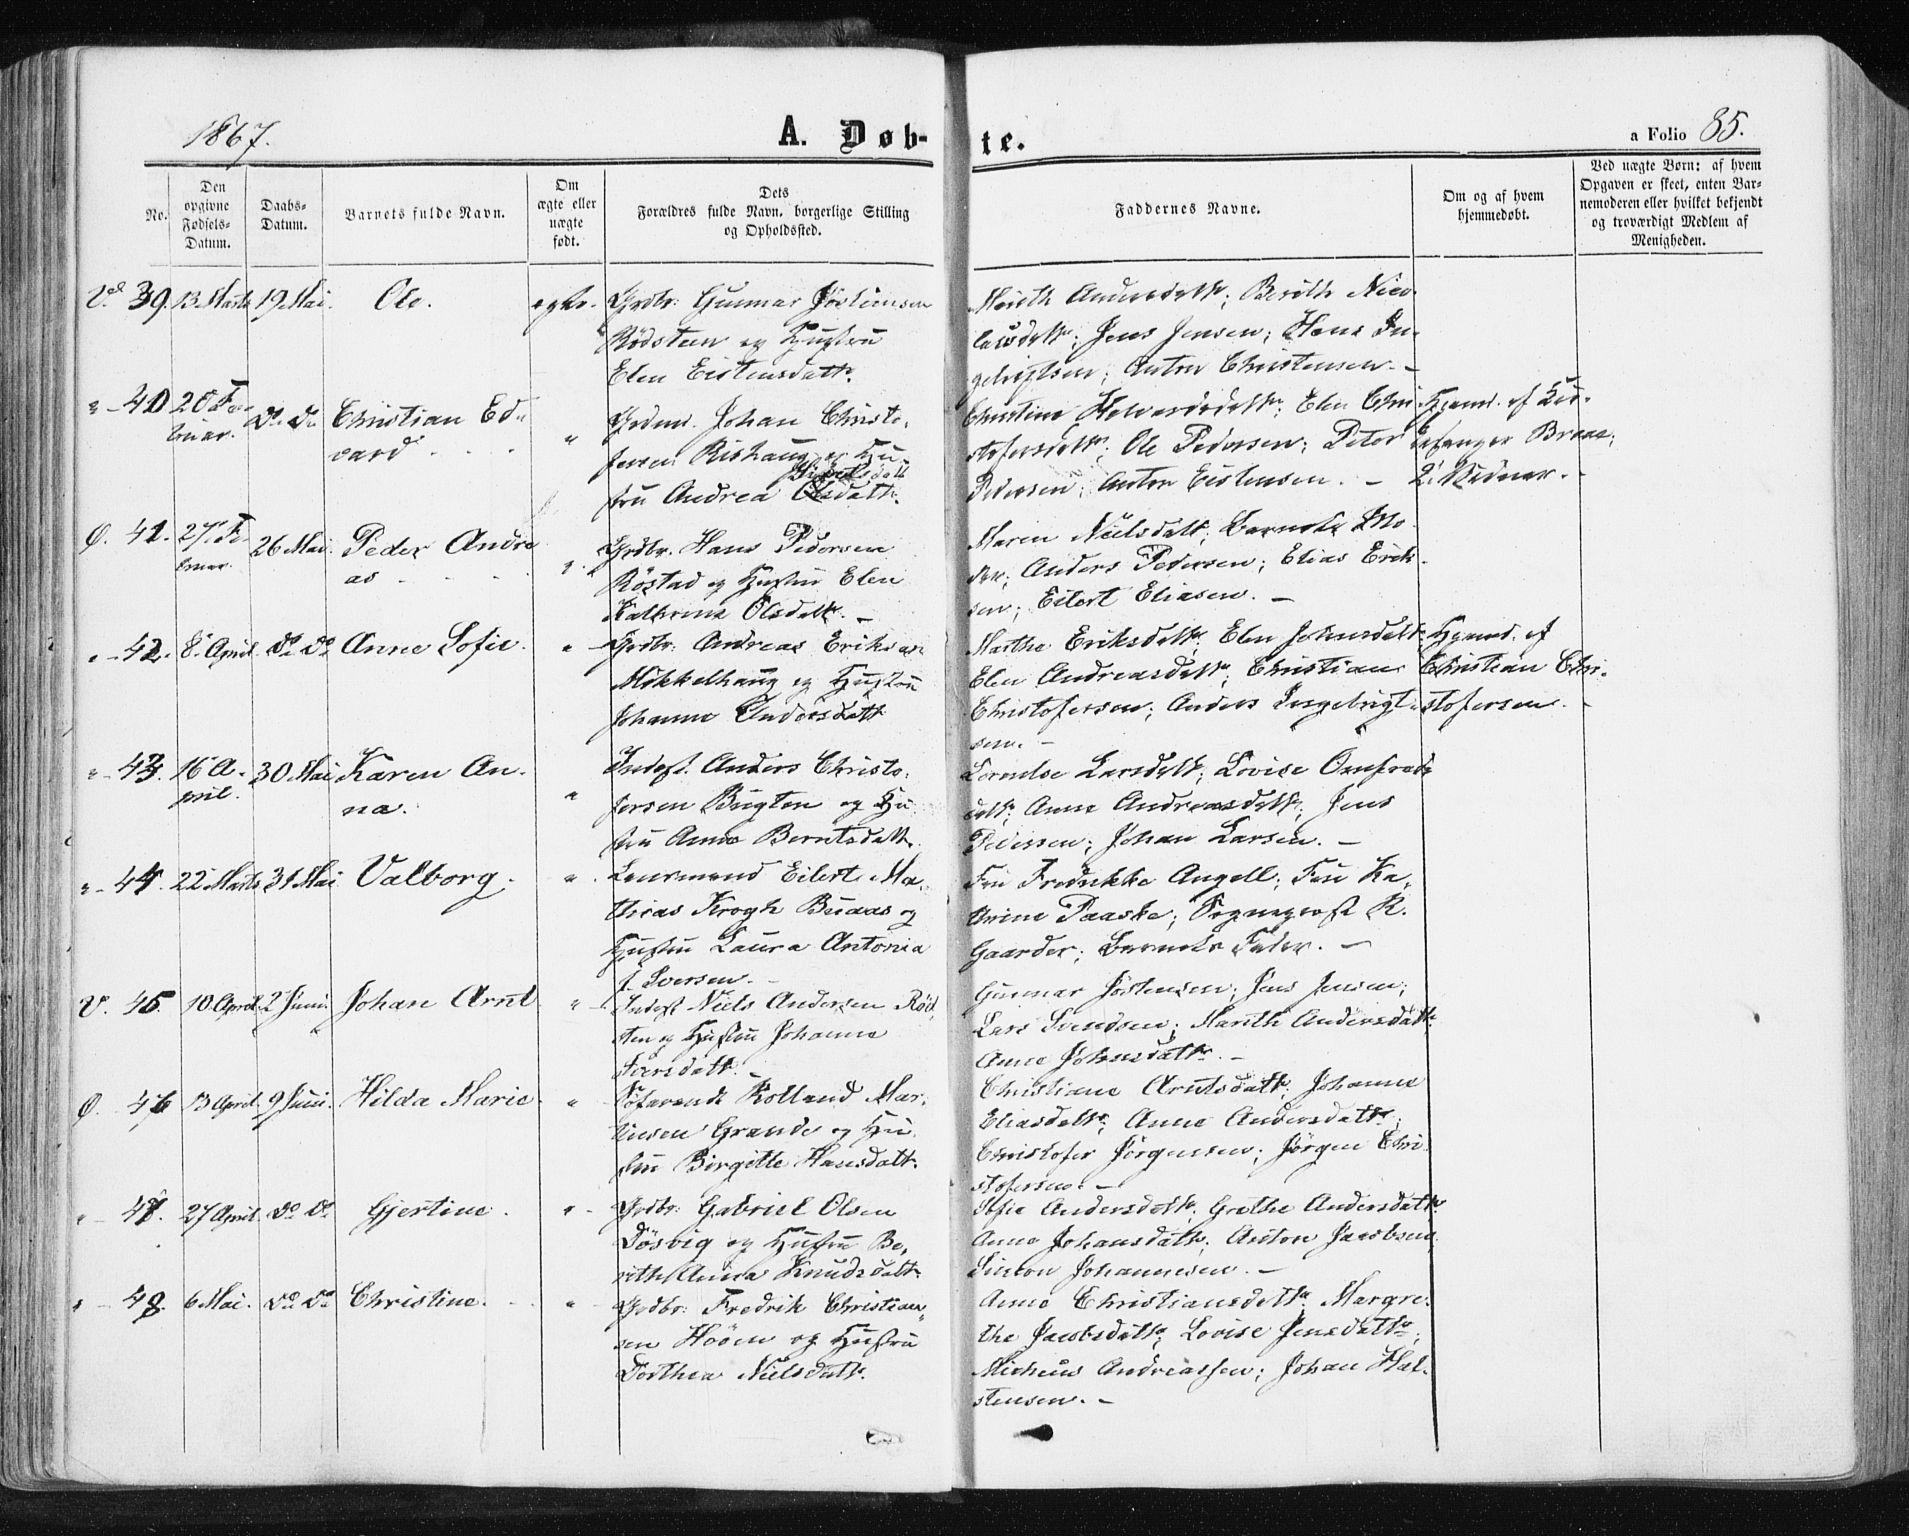 1867.
A. Døb-
te.
a Folio 85.
No.
Den
opgivne
Fødsels-
Datum.
Daabs-
Datum.
Barnets fulde Navn.
Om
ægte eller
uægte
født.
Dets
Forældres fulde Navn, borgerlige Stilling
og Opholdssted.
Faddernes Navne.
Om og af hvem
hjemmedøbt.
Ved uægte Børn: af hvem
Opgaven er skeet, enten Bar-
nemoderen eller hvilket bekjendt
og troværdigt Medlem af
Menigheden.
39. 13 Marts 19 Mai. Ole. ægte.
Grdbr: Gunnar Jöstensen
Rödsteen og Hustru
Elen Eistensdatt.
Marith Andersdattr; Berith Nico-
laisdattr; Jens Jensen; Hans In-
gebrigtsen; Anton Christensen. -
" - 40 20 Fe-
bruar. do do Christian Ed-
vard "
Johan Christo-
fersen Rishaug og Hu-
stru Andrea Olsdattr.
Christine Halvorsdattr; Elen Chri-
stofersdattr; Ole Pedersen; Peter
Pedersen; Anton Eistensen. -
Hjemd. af
2 Vidner. -
Ø. 41. 27 Fe-
bruar. 26 Mai. Peder Andre-
as "
Grdbr. Hans Pedersen
Röstad og Hustru Elen
Kathrine Olsdattr. -
Maren Nielsdatt; Barnets Mo-
der; Anders Pedersen; Elias Erik-
sen; Eilert Eliasen. -
" - 42. 8 April do do Anne Sofie. "
Grdbr: Andreas Eriksen
Mökkelhaug og Hustru
Johanne Andersdatt
Marthe Eriksdattr; Elen Johnsdattr;
Elen Andreasdattr; Christian
Christofersen; Anders Ingebrigt-
sen. -
Hjemd. af
Christian Chri-
stofersen. -
" - 43. 16 A-
pril. 30 Mai Karen An-
na. "
Inderst. Anders Christo-
fersen Bugten og Hu-
stru Anne Berntsdattr.
Lornelse Larsdatt; Lovise Ornfreds-
datt; Anne Andreasdattr; Jens
Pedersen; Johan Larsen. -
" - 44. 22 Marts 31 Mai Valborg. "
Lensmand Eilert Ma-
thias Krogh Buaas og
Hustru Laura Antonia
f. Iversen. -
Fru Fredrikke Angell; Fru Ka-
thrine Paaske; Sogneprest K.
Gaarder; Barnets Fader. -
V. 45. 10 April 2 Juni. Johan Arnt "
Inderst Niels Andersen Röd-
sten og Hustru Johanne
Iversdatt. -
Gunnar Jöstensen; Jens Jensen;
Lars Svendsen; Marith Andersdattr.
Anne Johnsdattr. -
Ø. 46 13 April 9 Juni. Hilda Marie "
Söfarende Rolland Mar-
tinsen Grande og Hu-
stru Birgitte Hansdatt.
Christiane Arntsdatt; Johanne
Eliasdattr; Anne Andersdattr;
Christofer Jörgensen; Jörgen Chri-
stofersen. -
" - 47. 27 April do do Gjertine. "
Grdbr: Gabriel Olsen
Dösvig og Hustru Be-
rith Anna Knudsdatt.
Sofie Andersdattr; Grethe Andersdattr.
Anne Johansdattr; Anton Jacobsen;
Simon Johannesen. -
" - 48. 6 Mai. do do Christine. "
Grdbr: Fredrik Christian-
sen Hööen og Hustru
Dorthea Nielsdatt.
Anne Christiansdattr; Margre-
the Jacobsdattr; Lovise Jensdattr;
Micheus Andreassen; Johan Hal-
stensen. -